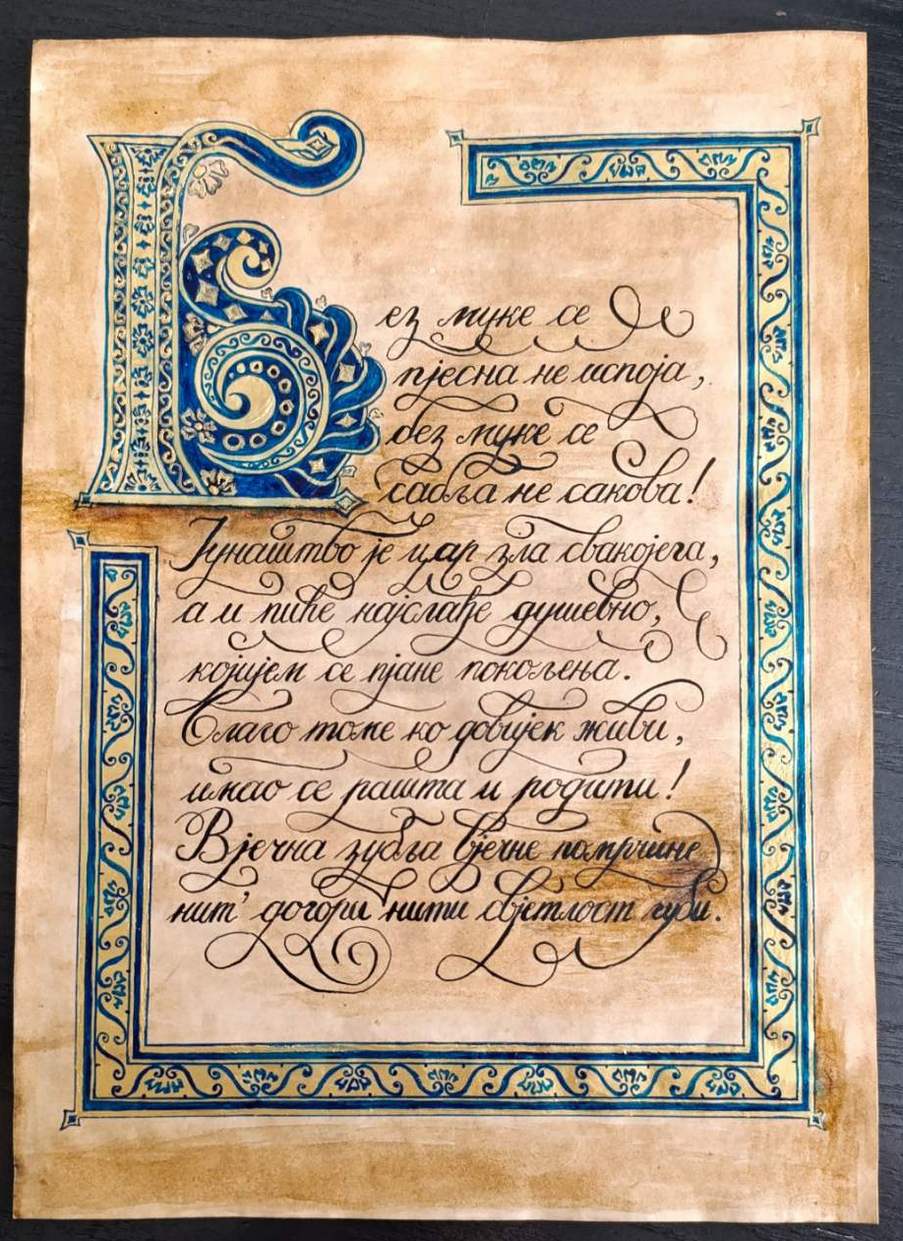 Без муке се
пјесна не испоја,
без муке се
сабља не сакова!
Јунаштво је цар зла свакојега,
а и пиће најслађе душевно,
којијем се пјане покољења.
Благо томе ко довијек живи,
имао се рашта и родити!
Вјечна зубља вјечне помрчине
нит' догори нити свјетлост губи.